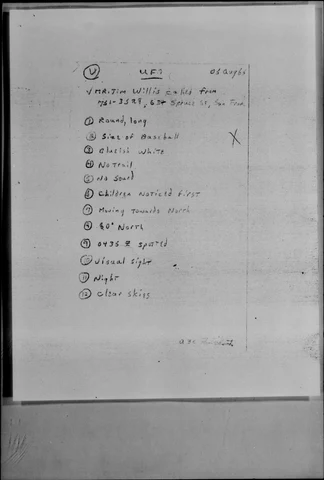 V UFO 05 Aug 65
√ MR. Jim Willis called from
Spruce St,
① Round, long
② Size of Baseball
③ Bluish White
④ No Trail
⑤ No Sound
⑥ Children Noticed first
⑦ Moving Towards North
⑧ North
⑨ 0435 Z spotted
⑩ Visual sight
⑪ Night
⑫ Clear skies
X